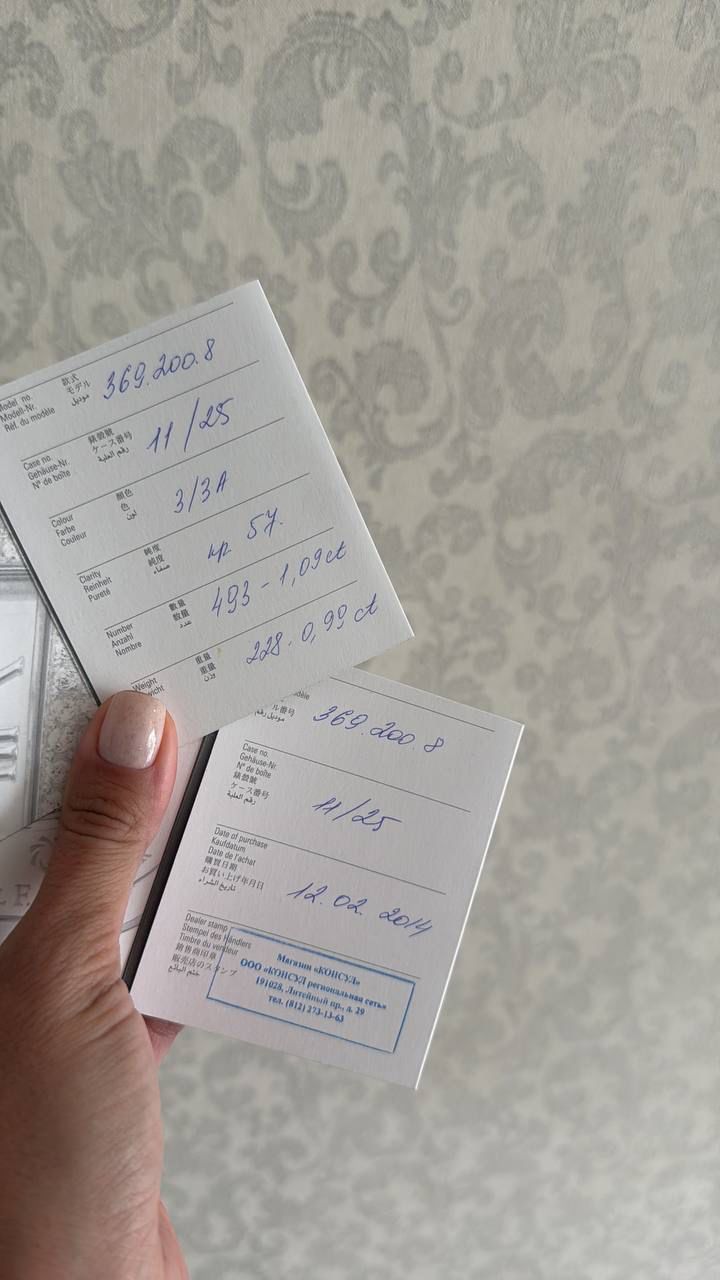 Model no.
Modell-Nr.
Réf. du modèle
款式
モデル
موديل
369.200.8
Case no.
Gehäuse-Nr.
N° de boîte
錶殼號
ケース番号
رقم العلبة
11/25
Colour
Farbe
Couleur
顏色
色
لون
3/3A
Clarity
Reinheit
Pureté
純度
純度
صفاء
кр 57.
Number
Anzahl
Nombre
數量
数量
عدد
493 - 1,09 ct
Weight
重量
重量
وزن
228. 0,99 ct
موديل رقم
369.200.8
Case no.
Gehäuse-Nr.
N° de boîte
錶殼號
ケース番号
رقم العلبة
11/25
Date of purchase
Kaufdatum
Date de l'achat
購買日期
お買い上げ年月日
تاريخ الشراء
12.02.2014
Dealer stamp
Stempel des Händlers
Timbre du vendeur
銷售商印章
販売店のスタンプ
ختم البائع
Магазин «КОНСУЛ»
ООО «КОНСУЛ региональная сеть»
191028, Литейный пр., д. 29
тел. (812) 273-13-63